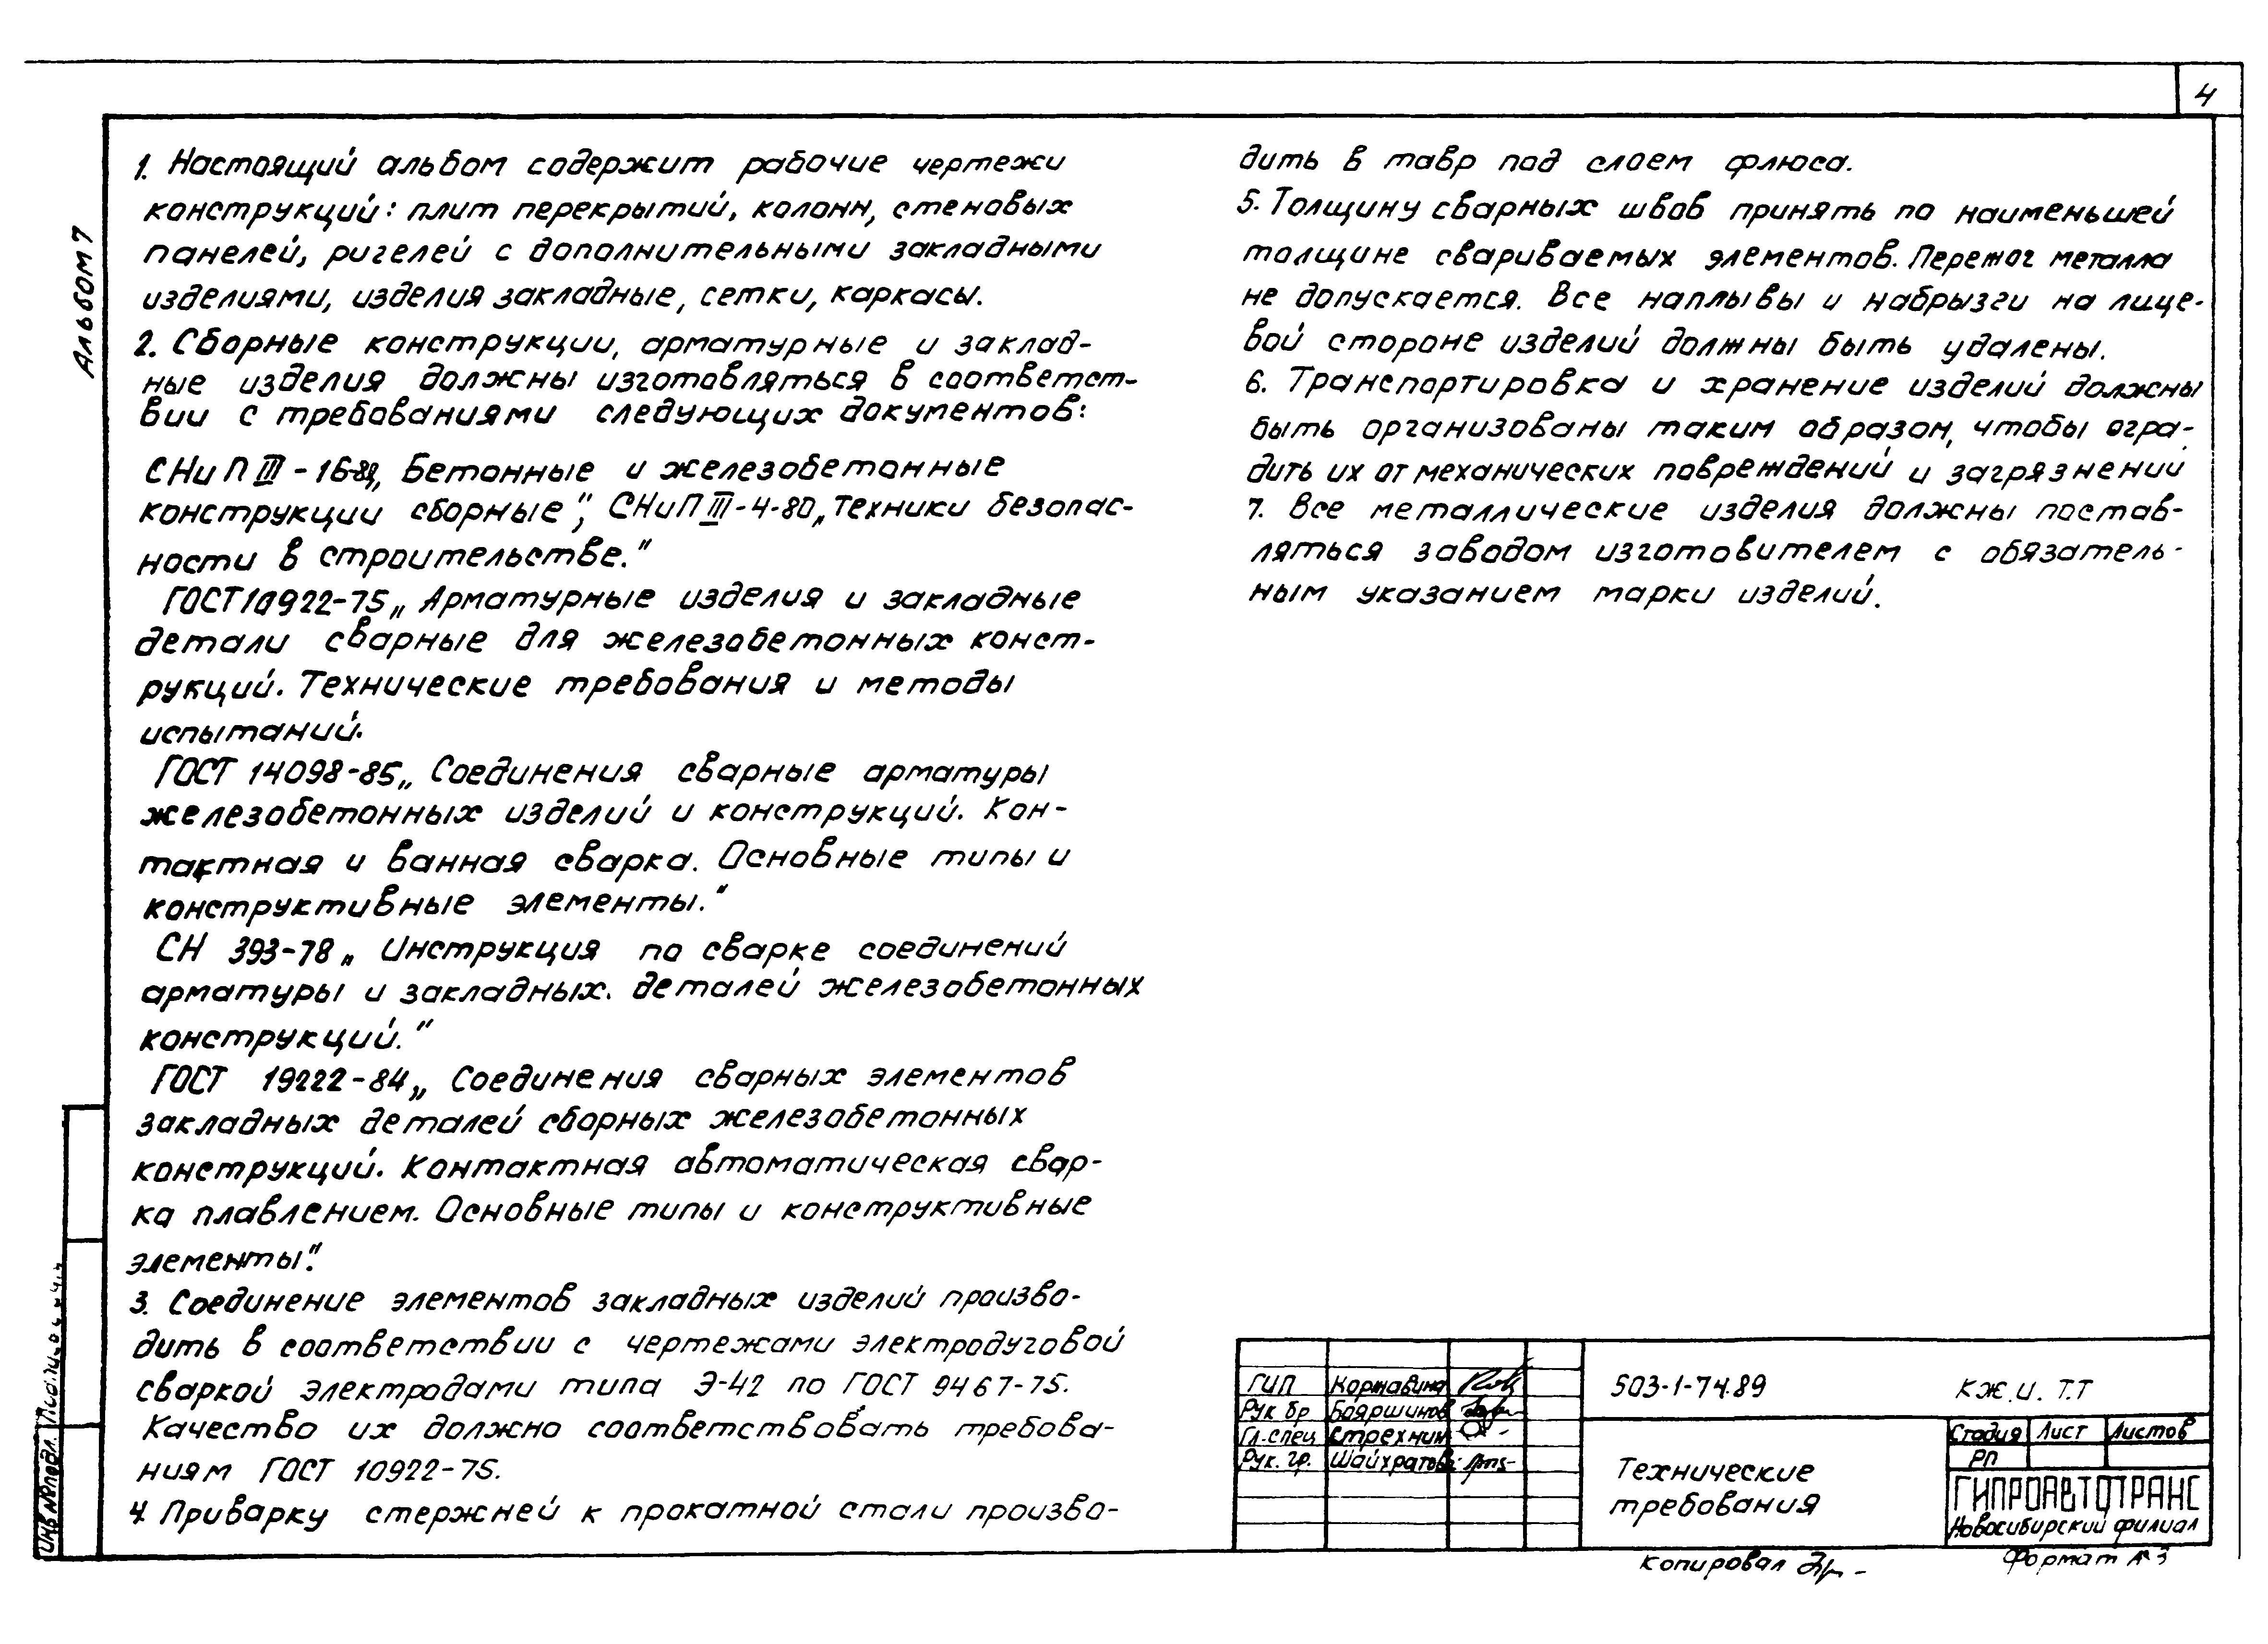 4
Альбом 7
1. Настоящий альбом содержит рабочие чертежи
конструкций: плит перекрытий, колонн, стеновых
панелей, ригелей с дополнительными закладными
изделиями, изделия закладные, сетки, каркасы.
2. Сборные конструкции, арматурные и заклад-
ные изделия должны изготовляться в соответст-
вии с требованиями следующих документов:
СНиП III - 16-80, Бетонные и железобетонные
конструкции сборные", СНиП III-4-80 „Техники безопас-
ности в строительстве."
ГОСТ 10922-75 „Арматурные изделия и закладные
детали сварные для железобетонных конст-
рукций. Технические требования и методы
испытаний.
ГОСТ 14098-85 „Соединения сварные арматуры
железобетонных изделий и конструкций. Кон-
тактная и ванная сварка. Основные типы и
конструктивные элементы."
СН 393-78 „Инструкция по сварке соединений
арматуры и закладных. деталей железобетонных
конструкций."
ГОСТ 19222-84 „Соединения сварных элементов
закладных деталей сборных железобетонных
конструкций. Контактная автоматическая свар-
ка плавлением. Основные типы и конструктивные
элементы".
3. Соединение элементов закладных изделий произво-
дить в соответствии с чертежами электродуговой
сваркой электродами типа Э-42 по ГОСТ 9467-75.
Качество их должно соответствовать требова-
ниям ГОСТ 10922-75.
4. Приварку стержней к прокатной стали произво-
дить в тавр под слоем флюса.
5. Толщину сварных швов принять по наименьшей
толщине свариваемых элементов. Пережог металла
не допускается. Все наплывы и набрызги на лице-
вой стороне изделий должны быть удалены.
6. Транспортировка и хранение изделий должны
быть организованы таким образом, чтобы огра-
дить их от механических повреждений и загрязнений
7. Все металлические изделия должны постав-
ляться заводом изготовителем с обязатель-
ным указанием марки изделий.
ГИП Коржавина
Рук. бр Бояршинов
Гл. спец Стрехнин
Рук. гр. Шайхратова
503-1-74.89 КЖ.И. Т.Т
Технические
требования
Стадия Лист Листов
РП
ГИПРОАВТОТРАНС
Новосибирский филиал
Инв № подл.
Копировал
Формат А3